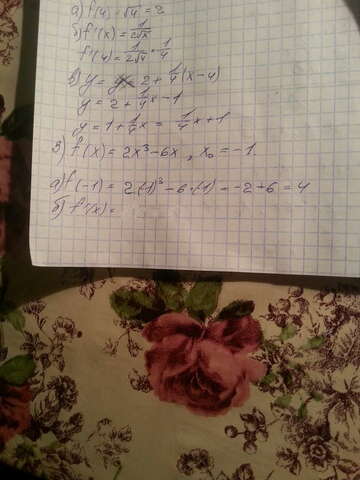 а) f(4) = √4 = 2
б) f'(x) = 1/2√x
f'(4) = 1/2√4 = 1/4
в) y = 2 + 1/4(x-4)
y = 2 + 1/4x - 1
y = 1 + 1/4x = 1/4x + 1
3) f(x) = 2x³ - 6x, x₀ = -1.
а) f(-1) = 2·(-1)³ - 6·(-1) = -2 + 6 = 4
б) f'(x) =